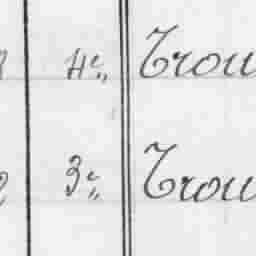 4e„ Trou
3e„ Trou